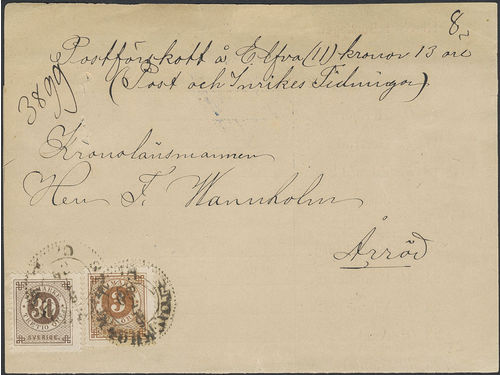 8
Postförskott å Elfva (11) kronor 13 öre
(Post och Inrikes Tidningar)
3899
Kronolänsmannen
Herr F. Wannholm
Årröd
30
TRETIO
SVERIGE
3